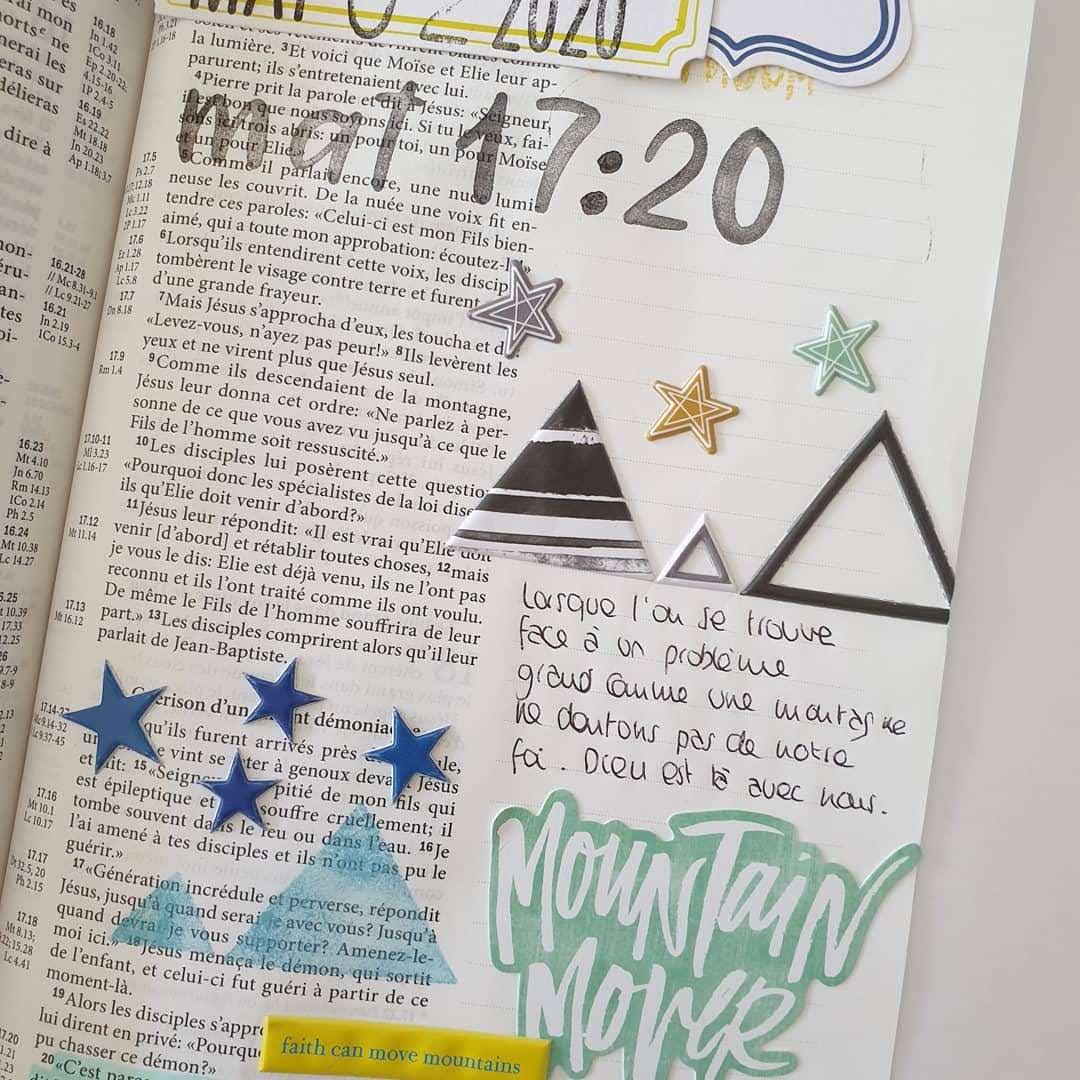 MAY 0 2 2020
mat 17:20
ai mon
orts ne
nerai les
eras sur
délieras
dire à
16.18
Jn 1.42
1Co 3.11
Ep 2.20.22
4.15-16
1P 2.4-5
16.19
Es 22.22
Mt 18.18
Jn 20.23
Ap 1.18; 3.7
16.21-28
// Mc 8.31-9.1
// Lc 9.21-27
16.21
Jn 2.19
1Co 15.3-4
16.23
Mt 4.10
Jn 6.70
Rm 14.13
1Co 2.14
Ph 2.5
16.24
Mt 10.38
Lc 14.27
la lumière. 3Et voici que Moïse et Elie leur ap-
parurent; ils s'entretenaient avec lui.
4Pierre prit la parole et dit à Jésus: «Seigneur,
il est bon que nous soyons ici. Si tu le veux, fai-
sons ici trois abris: un pour toi, un pour Moïse
et un pour Elie.»
5Comme il parlait encore, une nuée lumi-
neuse les couvrit. De la nuée une voix fit en-
tendre ces paroles: «Celui-ci est mon Fils bien-
aimé, qui a toute mon approbation: écoutez-le!»
6Lorsqu'ils entendirent cette voix, les discip
tombèrent le visage contre terre et furent
d'une grande frayeur.
7Mais Jésus s'approcha d'eux, les toucha et d
«Levez-vous, n'ayez pas peur!» 8Ils levèrent les
yeux et ne virent plus que Jésus seul.
9Comme ils descendaient de la montagne,
Jésus leur donna cet ordre: «Ne parlez à per-
sonne de ce que vous avez vu jusqu'à ce que le
Fils de l'homme soit ressuscité.»
10Les disciples lui posèrent cette question
«Pourquoi donc les spécialistes de la loi dise
ils qu'Elie doit venir d'abord?»
11Jésus leur répondit: «Il est vrai qu'Elie doit
venir [d'abord] et rétablir toutes choses, 12mais
je vous le dis: Elie est déjà venu, ils ne l'ont pas
reconnu et ils l'ont traité comme ils ont voulu.
De même le Fils de l'homme souffrira de leur
part.» 13Les disciples comprirent alors qu'il leur
parlait de Jean-Baptiste.
érison d'un nt démonia
qu'ils furent arrivés près ule,
un e vint se ter à genoux deva Jésus
et dit: 15«Seigne pitié de mon fils qui
est épileptique et souffre cruellement; il
tombe souvent dans le feu ou dans l'eau. 16Je
l'ai amené à tes disciples et ils n'ont pas pu le
guérir.»
17«Génération incrédule et perverse, répondit
Jésus, jusqu'à quand serai-je avec vous? Jusqu'à
quand devrai-je vous supporter? Amenez-le-
moi ici.» 18Jésus menaça le démon, qui sortit
de l'enfant, et celui-ci fut guéri à partir de ce
moment-là.
19Alors les disciples s'appro
lui dirent en privé: «Pourqu
pu chasser ce démon?»
20«C'est parce
17.5
Ps 2.7
Mc 1.11
Lc 3.22
2P 1.17
17.6
Ez 1.28
Ap 1.17
Lc 5.8
17.7
Dn 8.18
17.9
Rm 1.4
17.10-11
Ml 3.23
Lc 1.16-17
17.12
Mt 11.14
17.13
Mt 16.12
17.16
Mt 10.1
Lc 10.17
17.17
Dt 32.5, 20
Ph 2.15
17.18
Mt 8.13;
Lc 4.41
Lorsque l'on se trouve
face à un problème
grand comme une montagne
ne doutons pas de notre
foi. Dieu est là avec nous.
MOUNTAIN
MOVER
faith can move mountains